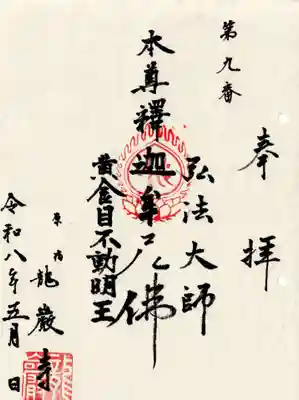 第九番
奉拝
弘法大師
本尊釋迦牟尼佛
黄金目不動明王
東向
龍巌寺
令和八年五月 日